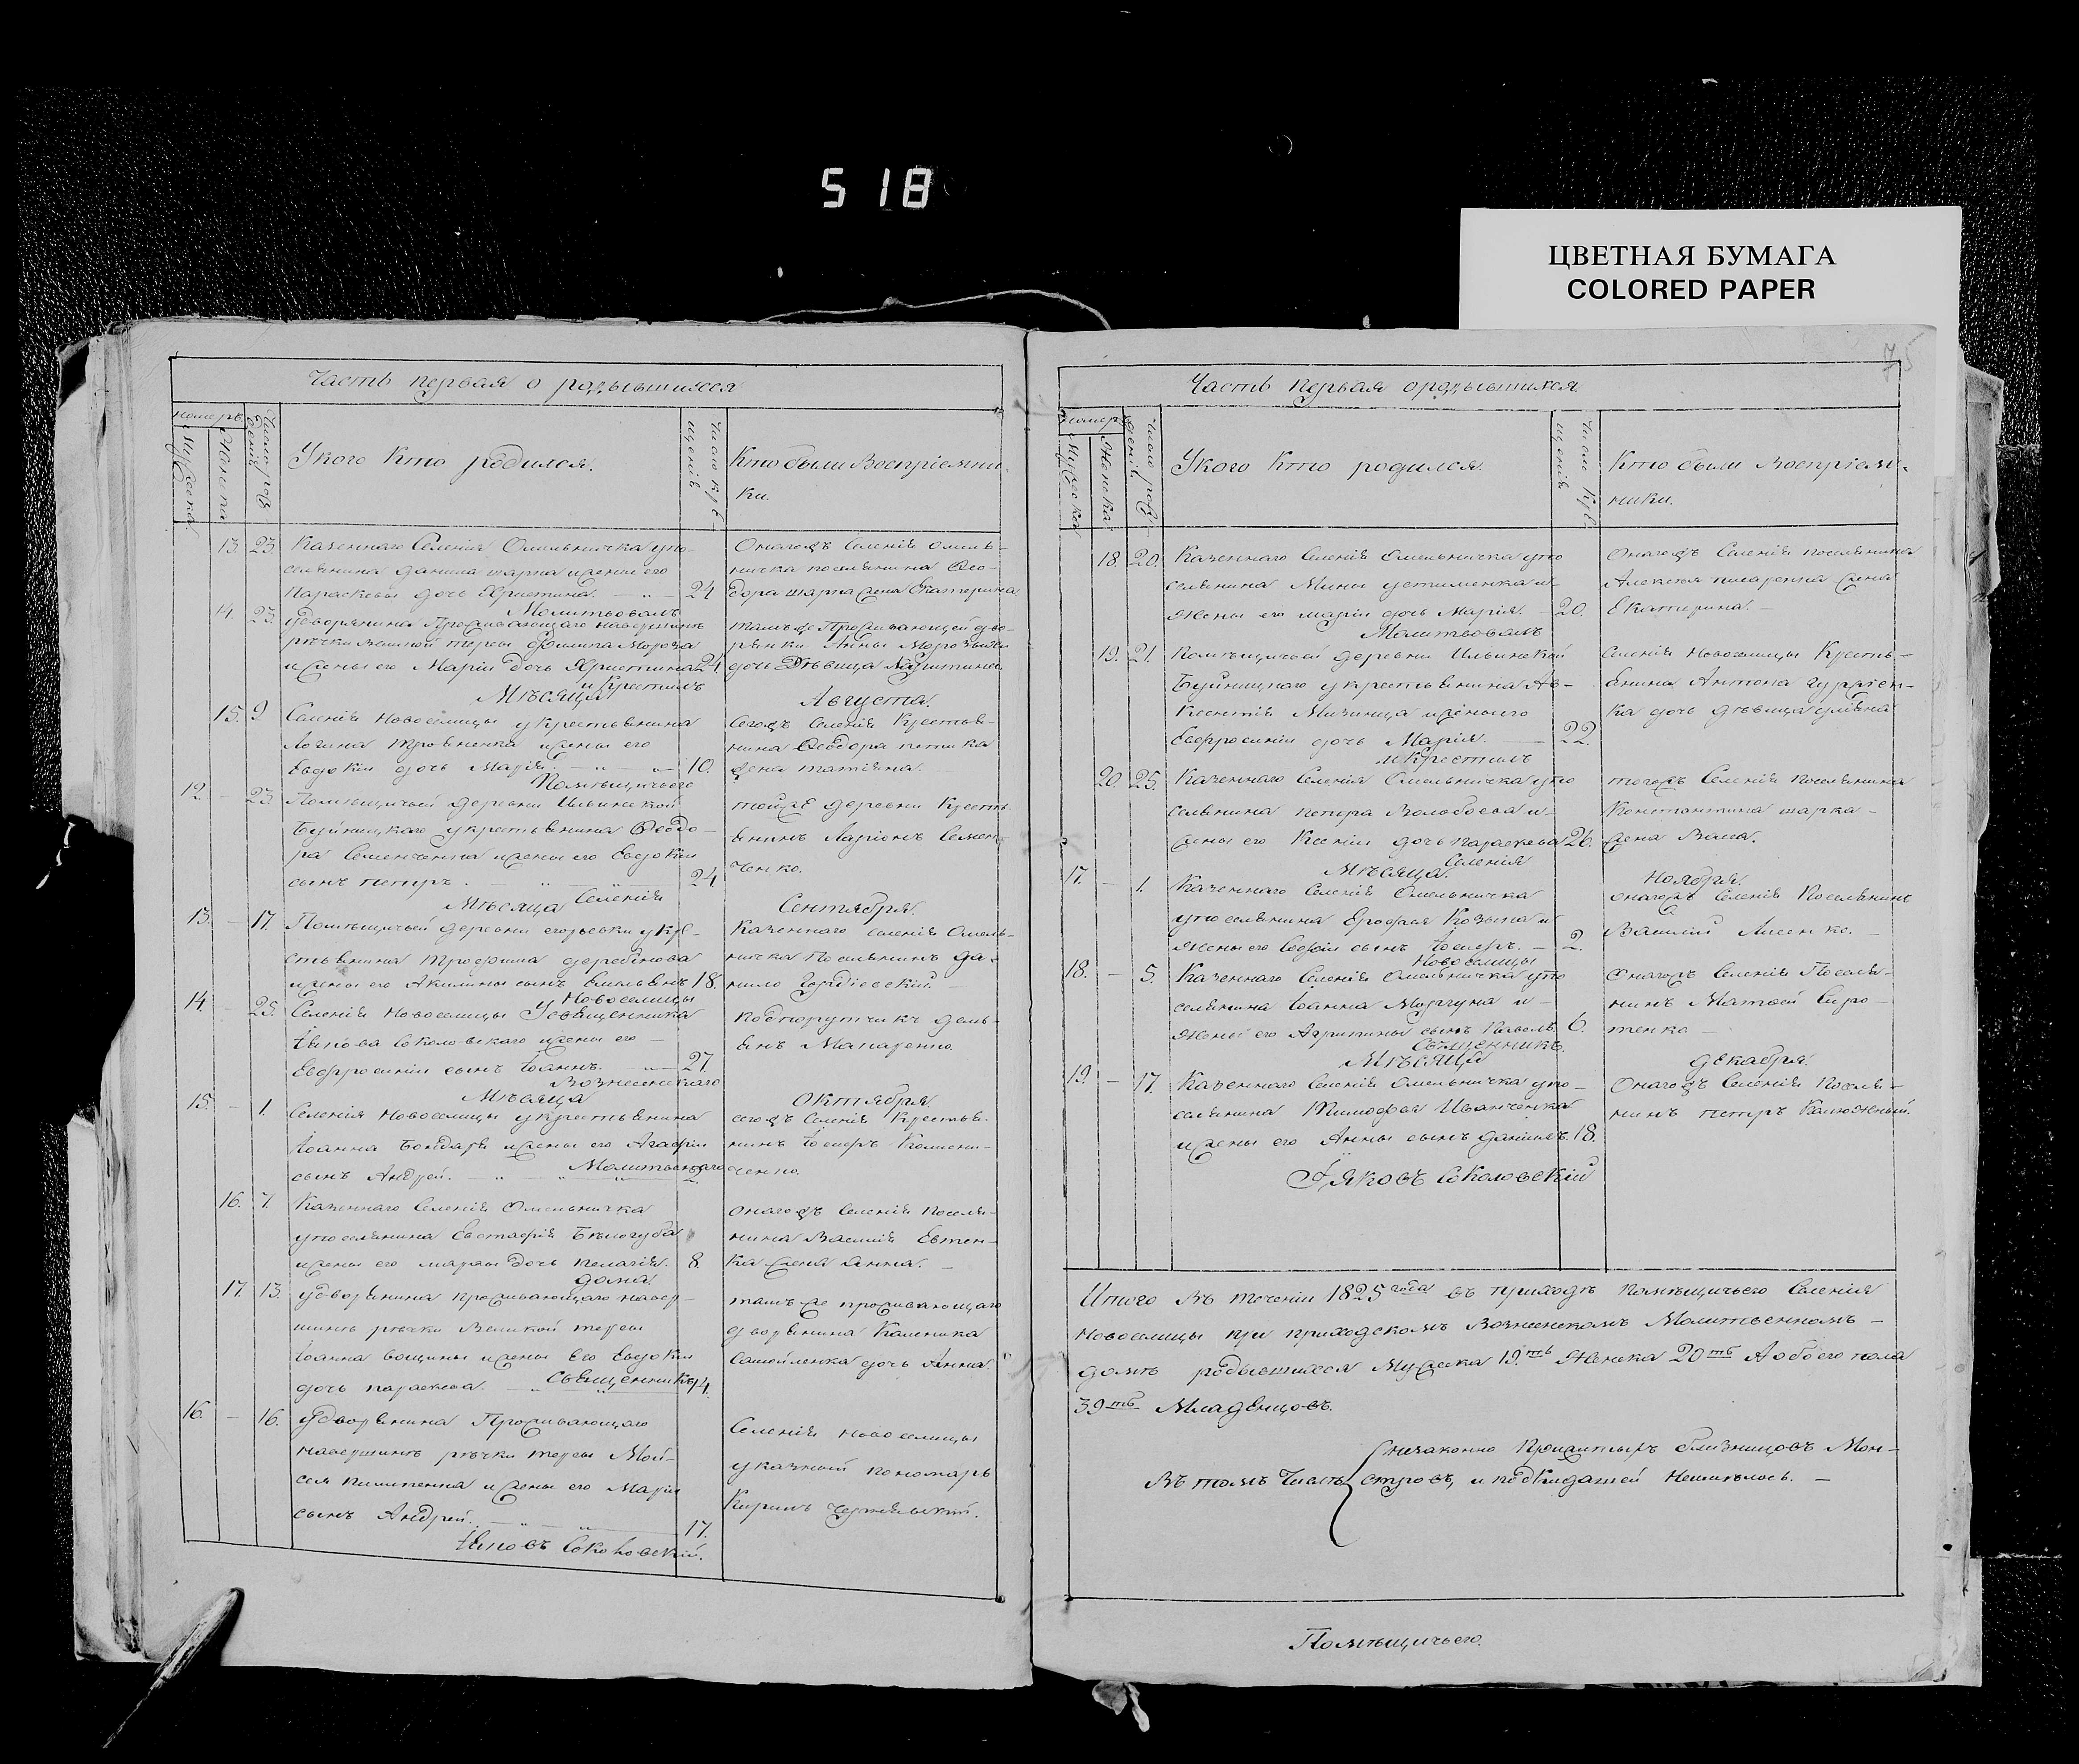 518
ЦВЕТНАЯ БУМАГА
COLORED PAPER
75
Часть первая о родившихся
номеръ
Мужеска
Женска
Число рож
денія
У кого кто родился.
Число кре
щенія
Кто были Воспріемни
ки.
13. 23. Казеннаго Селенія Омельничка у по-
селянина Данила шарпа и жены его
Параскевы дочь Христина. 24
Онагожъ Селенія Омель-
ничка поселянина Фео-
дора шарпа жена Екатерина
Молитвовалъ
14. 23. У дворянина Проживающаго на вершинѣ
рѣчки Великой терсы Филипа Мороза
и жены его Маріи дочь Христина 24.
тамъже Проживающей дво-
рянки Анны Морозовой
дочь Дѣвица
и Крестилъ
Мѣсяца Августа.
15. 9 Селенія Новоселицы у крестьянина
Логина Тровненка и жены его
Евдокіи дочь Марія. 10.
Сегожъ Селенія Крестья-
нина Феодора петика
жена татіяна.
Помѣщичьего
12 - 23 Помѣщичьей деревни Ильинской
Буйницкаго у крестьянина Феодо-
ра Семенченка и жены его Евдокіи
сынъ петръ. 24
тойже деревни Кресть
янинъ Ларіонъ Семен-
ченко.
Селенія
Мѣсяца Сентября.
13. - 17. Помѣщичьей деревни егорьевки у кре-
стьянина Трофима деребнова
и жены его Акилины сынъ Емельянъ 18.
Казеннаго селенія Омель-
ничка Поселянинъ Да-
нило Гордіевскій.
Новоселицы
14. - 25. Селенія Новоселицы У священника
Іякова Соколовскаго и жены его
Евфросиніи сынъ Іоаннъ. 27.
подпорутчикъ демь-
янъ Макаренко.
Вознесенскаго
Мѣсяца Октября.
15. - 1. Селенія Новоселицы у крестьянина
Іоанна Бондаря и жены его Агафіи
сынъ Андрей. 2.
сегожъ Селенія Крестья-
нинъ Іосифъ Коломни-
ченко.
Молитвеннаго
16. 7. Казеннаго Селенія Омельничка
у поселянина Евстафія Бѣлогуба
и жены его марѳы дочь пелагія. 8.
онагожъ Селенія Поселя-
нина Василія Евтен-
ка жена Анна.
дома
17. 13. У дворянина проживающаго на вер-
шинѣ рѣчки Великой терсы
Іоанна вощины и жены Его Евдокіи
дочь параскева. 14.
тамъ же проживающаго
дворянина Каленика
Самойленка дочь Анна.
Священникъ
16. - 16. У дворянина Проживающаго
на вершинѣ рѣчки терсы Мой-
сея пилипенка и жены его Маріи
сынъ Андрей. 17.
Селенія Новоселицы
указный пономарь
Кирилъ Чернявскій.
Іяковъ Соколовскій.
Часть первая о родившихся
номеръ
Мужеска
Женска
Число рож
денія
У кого кто родился.
Число Кре
щенія
Кто были воспріем-
ники.
18. 20. Казеннаго Селенія Омельничка у по
селянина Мины устименка и
жены его маріи дочь Марія. 20.
Онагожъ Селенія поселянина
Алексѣя писаренка жена
Екатерина.
Молитвовалъ
19. 21. Помѣщичьей деревни Ильинской
Буйницкаго у крестьянина Ав-
ксентія Мизинца и жены его
Евфросиніи дочь Марія. 22.
Селенія Новоселицы Кресть-
янина Антона
ка дочь дѣвица
и Крестилъ
20. 25. Казеннаго Селенія Омельничка у по
селянина петра Волобоева и
жены его Ксеніи дочь параскева 26.
тогожъ Селенія поселянина
Константина шарка
жена Васса.
Селенія
Мѣсяца Ноября.
17. - 1. Казеннаго Селенія Омельничка
у поселянина Ерофея Козына и
жены его Софіи сынъ Іосифъ. 2.
онагожъ Селенія Поселянинъ
Василій Лисенко.
Новоселицы
18. - 5. Казеннаго Селенія Омельничка у по
селянина Іоанна Моргуна и
жены его Агрипины сынъ Павелъ. 6.
Онагожъ Селенія Поселя-
нинъ Матвей Сиро-
тенко
Священникъ
Мѣсяца Декабря.
19. - 17. Казеннаго Селенія Омельничка у по-
селянина Тимофея Иванченка
и жены его Анны сынъ Даніилъ. 18.
Онагожъ Селенія Поселя-
нинъ петръ Калюжный.
Іяковъ Соколовскій
Итого въ теченіи 1825 года въ приходѣ помѣщичьего Селенія
Новоселицы при приходскомъ Вознесенскомъ Молитвенномъ
домѣ родившихся Мужеска 19.ть Женска 20ть А обоего пола
39ть Младенцовъ.
Въ томъ Числѣ
незаконно Прижитыхъ близницовъ Мон-
стровъ, и подкидашей Неимѣлось.
Помѣщичьего.